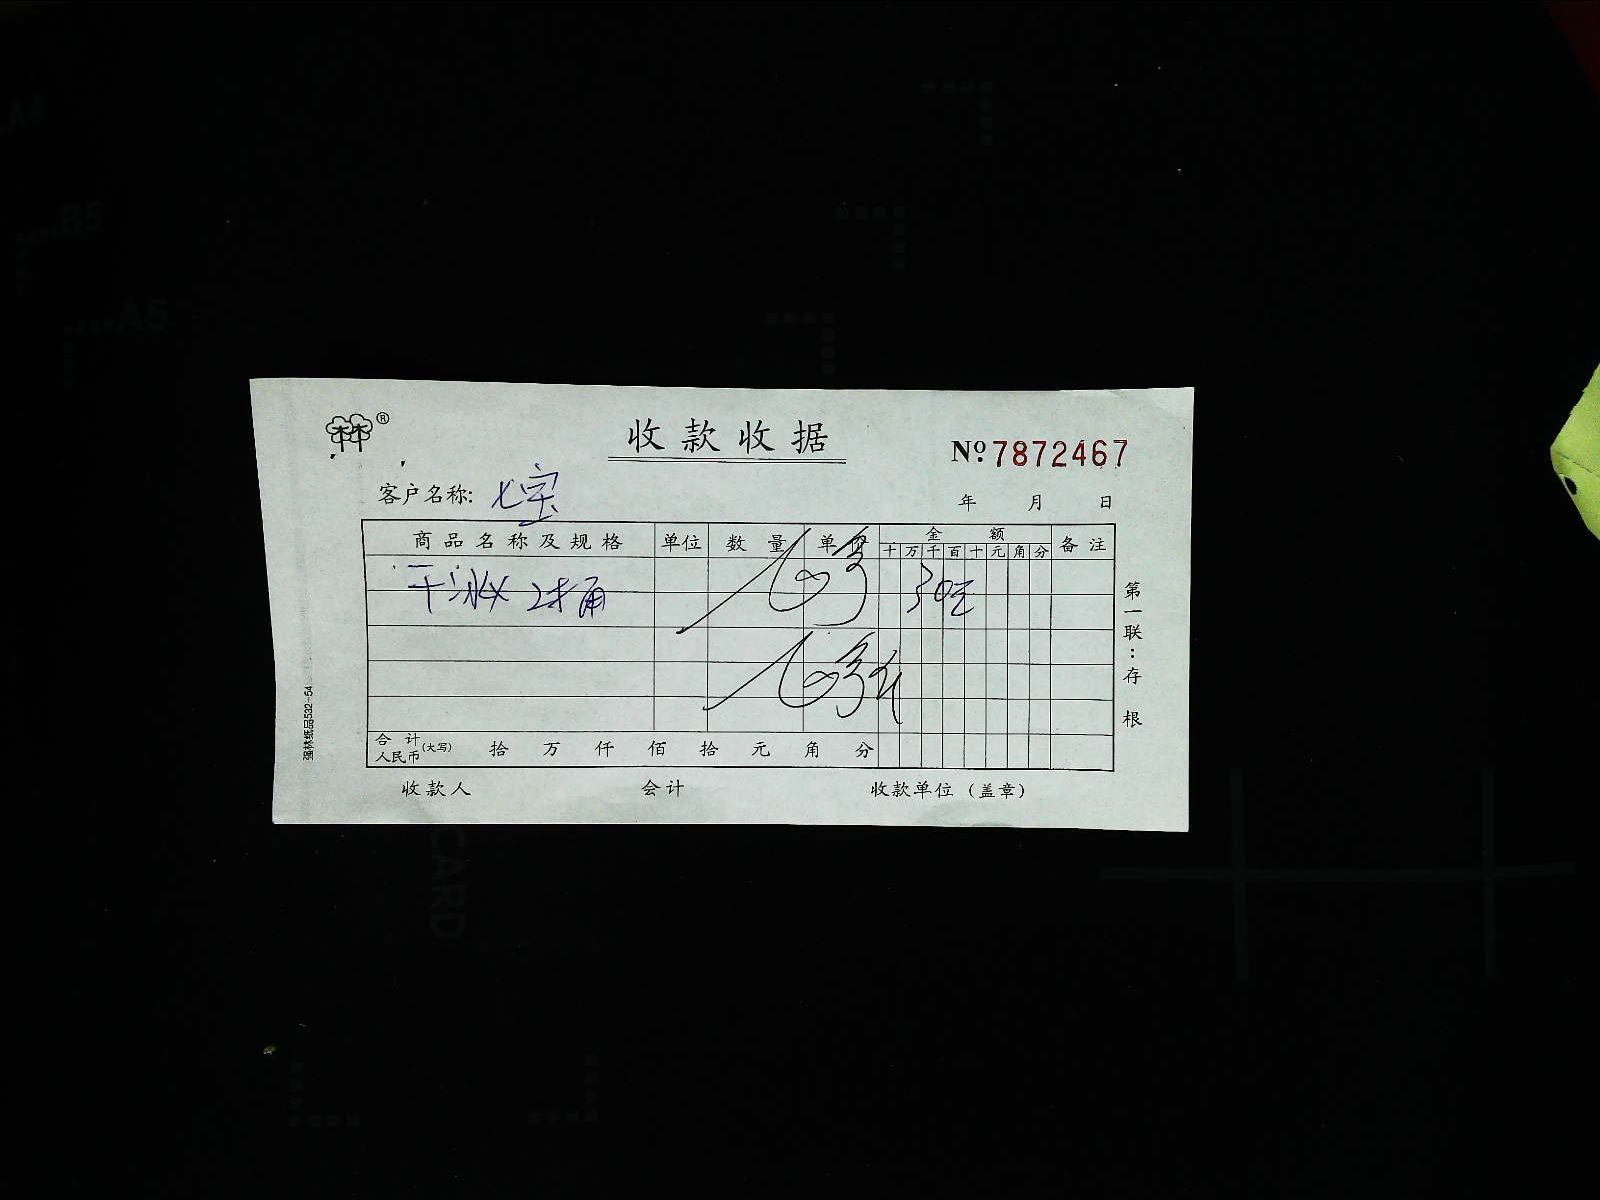 收款收据
№ 7872467
客户名称: 七宝
年 月 日
商品名称及规格 单位 数量 单 金额 备注
十 万 千 百 十 元 角 分
干冰 2桶 30元
合计人民币(大写) 拾 万 仟 佰 拾 元 角 分
收款人 会计 收款单位(盖章)
第一联:存根
强林纸品532-54
A5
B5
CARD